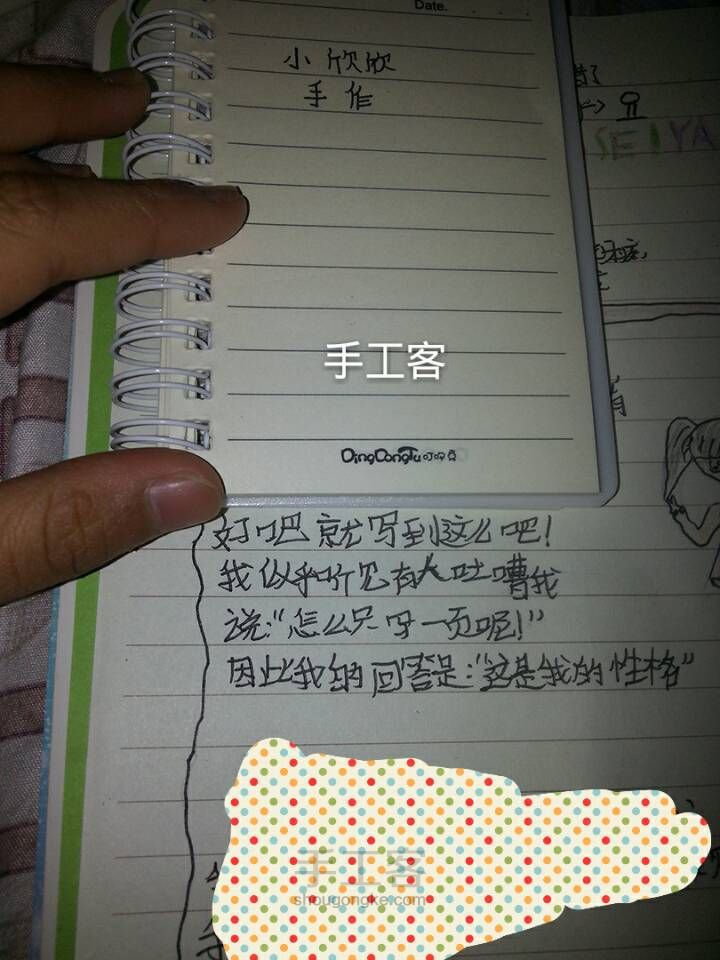 Date.
小欣欣
手作
SEIYA
手工客
DingDongTu
好吧就写到这么吧!
我似乎听见有人吐嘈我
说:"怎么只写一页呢!"
因此我的回答是:"这是我的性格"
手工客
shougongke.com